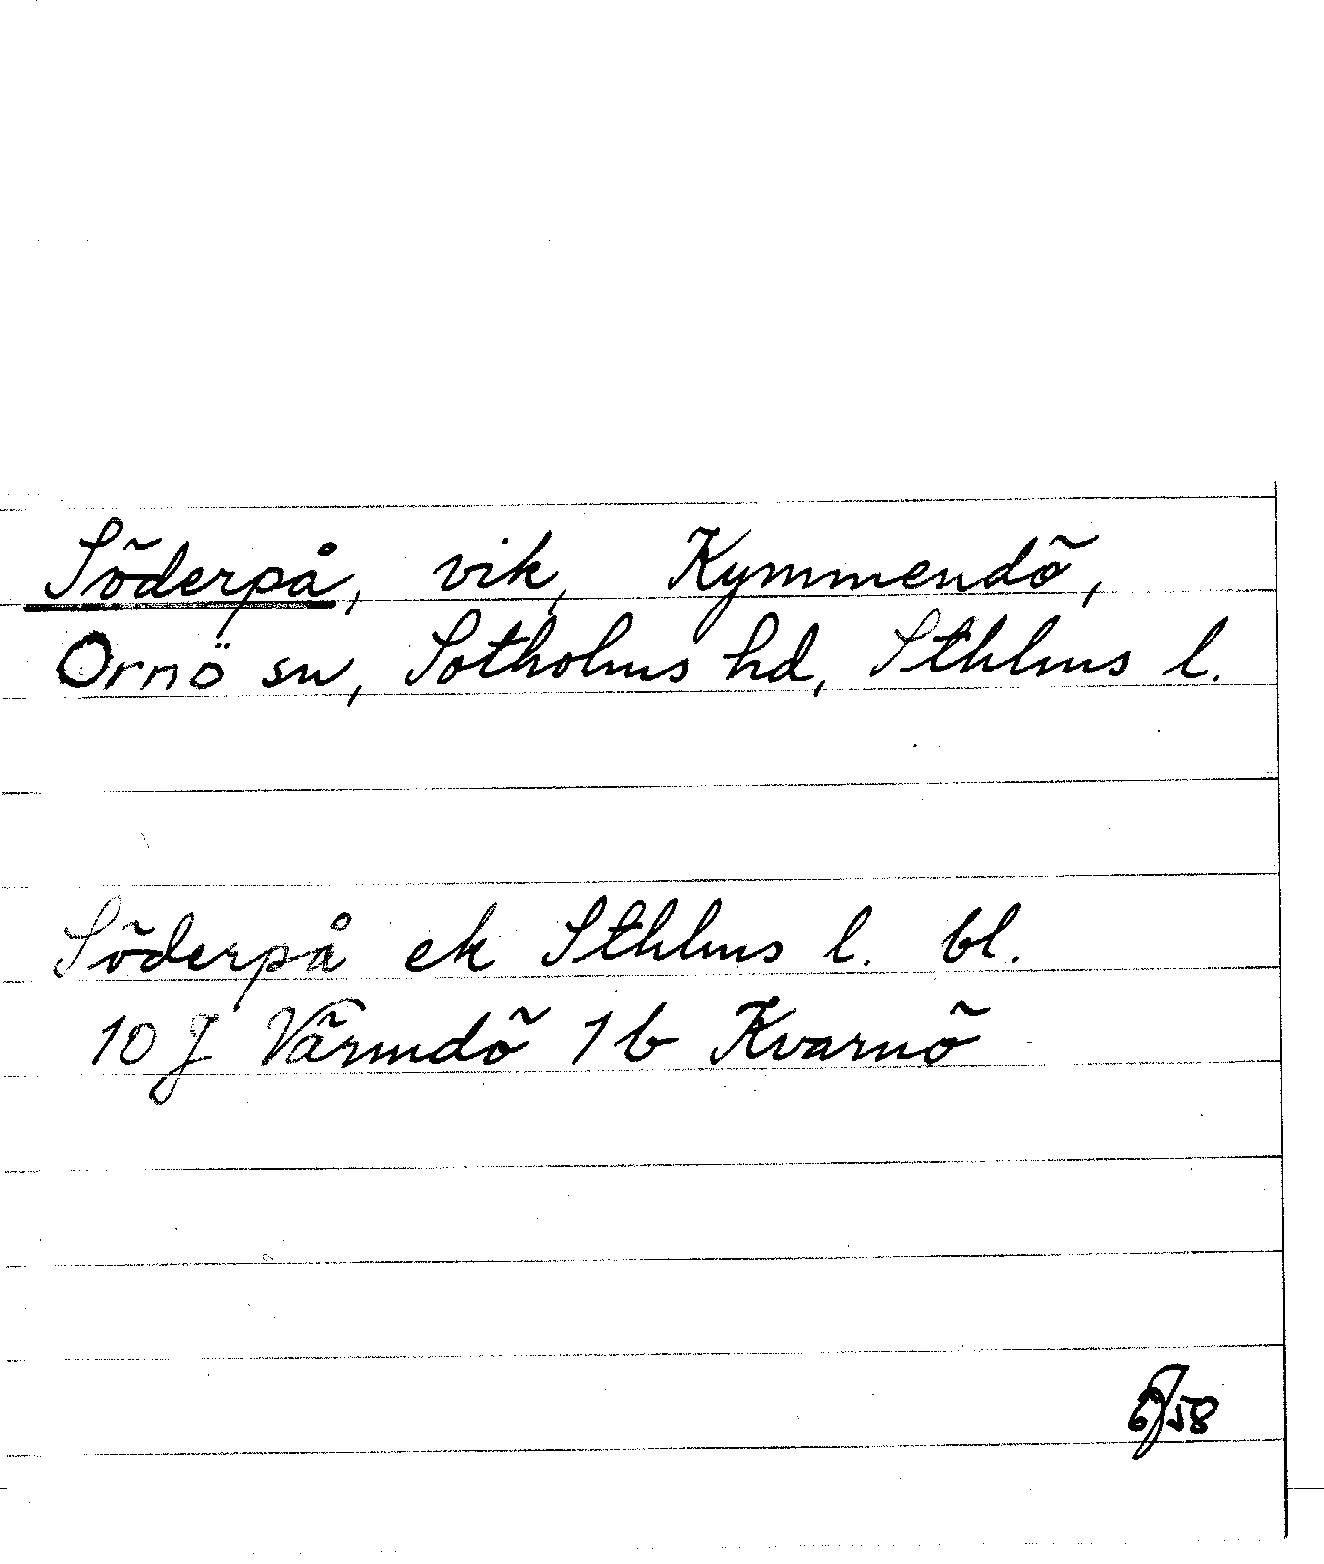 Söderpå, vik, Kymmendö,
Ornö sn, Sotholms hd, Sthlms l.
Söderpå ek Sthlms l. bl.
10 J Värmdö 1 b Kvarnö